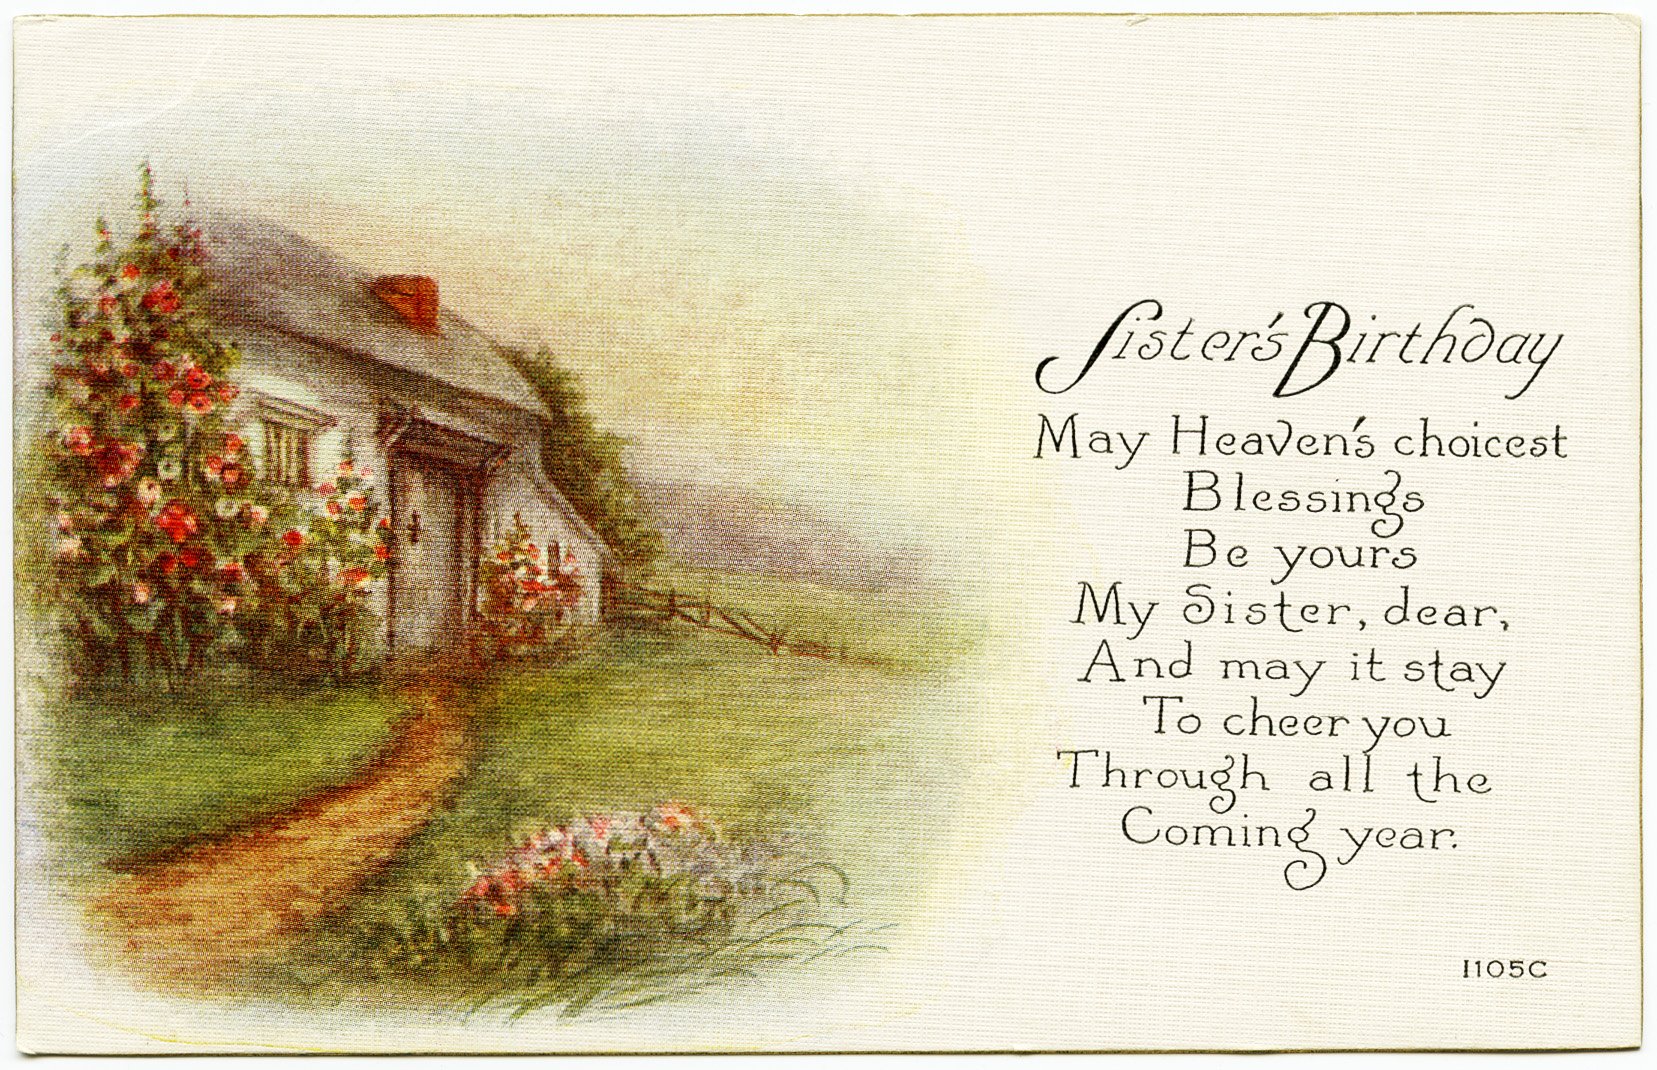 Sister's Birthday
May Heaven's choicest
Blessings
Be yours
My Sister, dear,
And may it stay
To cheer you
Through all the
Coming year.
1105C